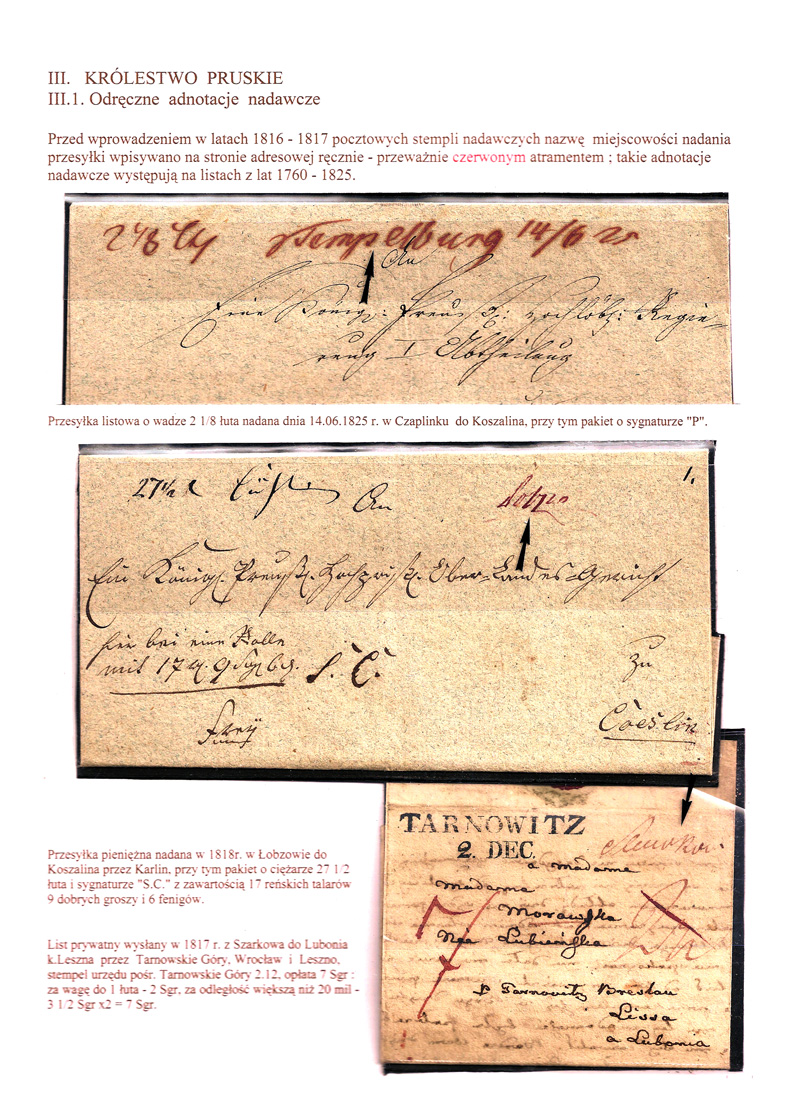 III. KRÓLESTWO PRUSKIE
III.1. Odręczne adnotacje nadawcze
Przed wprowadzeniem w latach 1816 - 1817 pocztowych stempli nadawczych nazwę miejscowości nadania
przesyłki wpisywano na stronie adresowej ręcznie - przeważnie czerwonym atramentem ; takie adnotacje
nadawcze występują na listach z lat 1760 - 1825.
Tempelburg 14/6 25
An
Eine Königl: Preuß: hochlöbl: Regie-
rung I Abtheilung
Przesyłka listowa o wadze 2 1/8 łuta nadana dnia 14.06.1825 r. w Czaplinku do Koszalina, przy tym pakiet o sygnaturze "P".
27 1/2 An 1.
Ein Königl. Preußl. Ober-Landes-Gericht
hier bei eine Rolle
mit 17 S. C. zu
Frey Coeslin
Przesyłka pieniężna nadana w 1818r. w Łobzowie do
Koszalina przez Karlin, przy tym pakiet o ciężarze 27 1/2
łuta i sygnaturze "S.C." z zawartością 17 reńskich talarów
9 dobrych groszy i 6 fenigów.
List prywatny wysłany w 1817 r. z Szarkowa do Lubonia
k.Leszna przez Tarnowskie Góry, Wrocław i Leszno,
stempel urzędu pośr. Tarnowskie Góry 2.12, opłata 7 Sgr :
za wagę do 1 łuta - 2 Sgr, za odległość większą niż 20 mil -
3 1/2 Sgr x2 = 7 Sgr.
TARNOWITZ
2. DEC.
a madame
Madame
Morawska
Née Lubieńska
p Tarnovitz Breslau
Lissa
a Lubonia